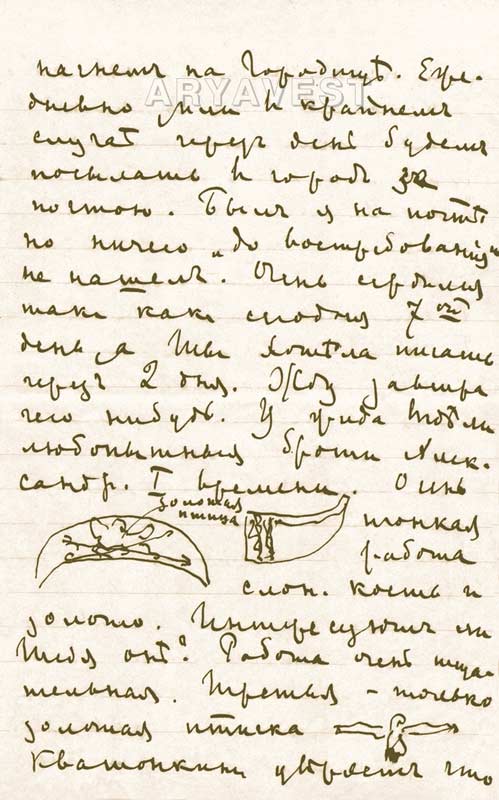 ARYAVEST
начнемъ на Городищѣ. Еже-
дневно или въ крайнемъ
случаѣ черезъ день будемъ
посылать въ городъ за
почтою. Былъ я на почтѣ
но ничего „до востребованія“
не нашелъ. Очень сердился
такъ какъ сегодня 7ой
день, а Ты хотѣла писать
черезъ 2 дня. Жду завтра
чего нибудь. У видѣли
любопытныя броши Алек-
сандр. I времени. Очень
золотая
птица
тонкая
работа
слон. кость и
золото. Интересуютъ ли
Тебя онѣ? Работа очень тща-
тельная. Третья – только
золотая птичка
Квашонкинъ увѣряетъ что